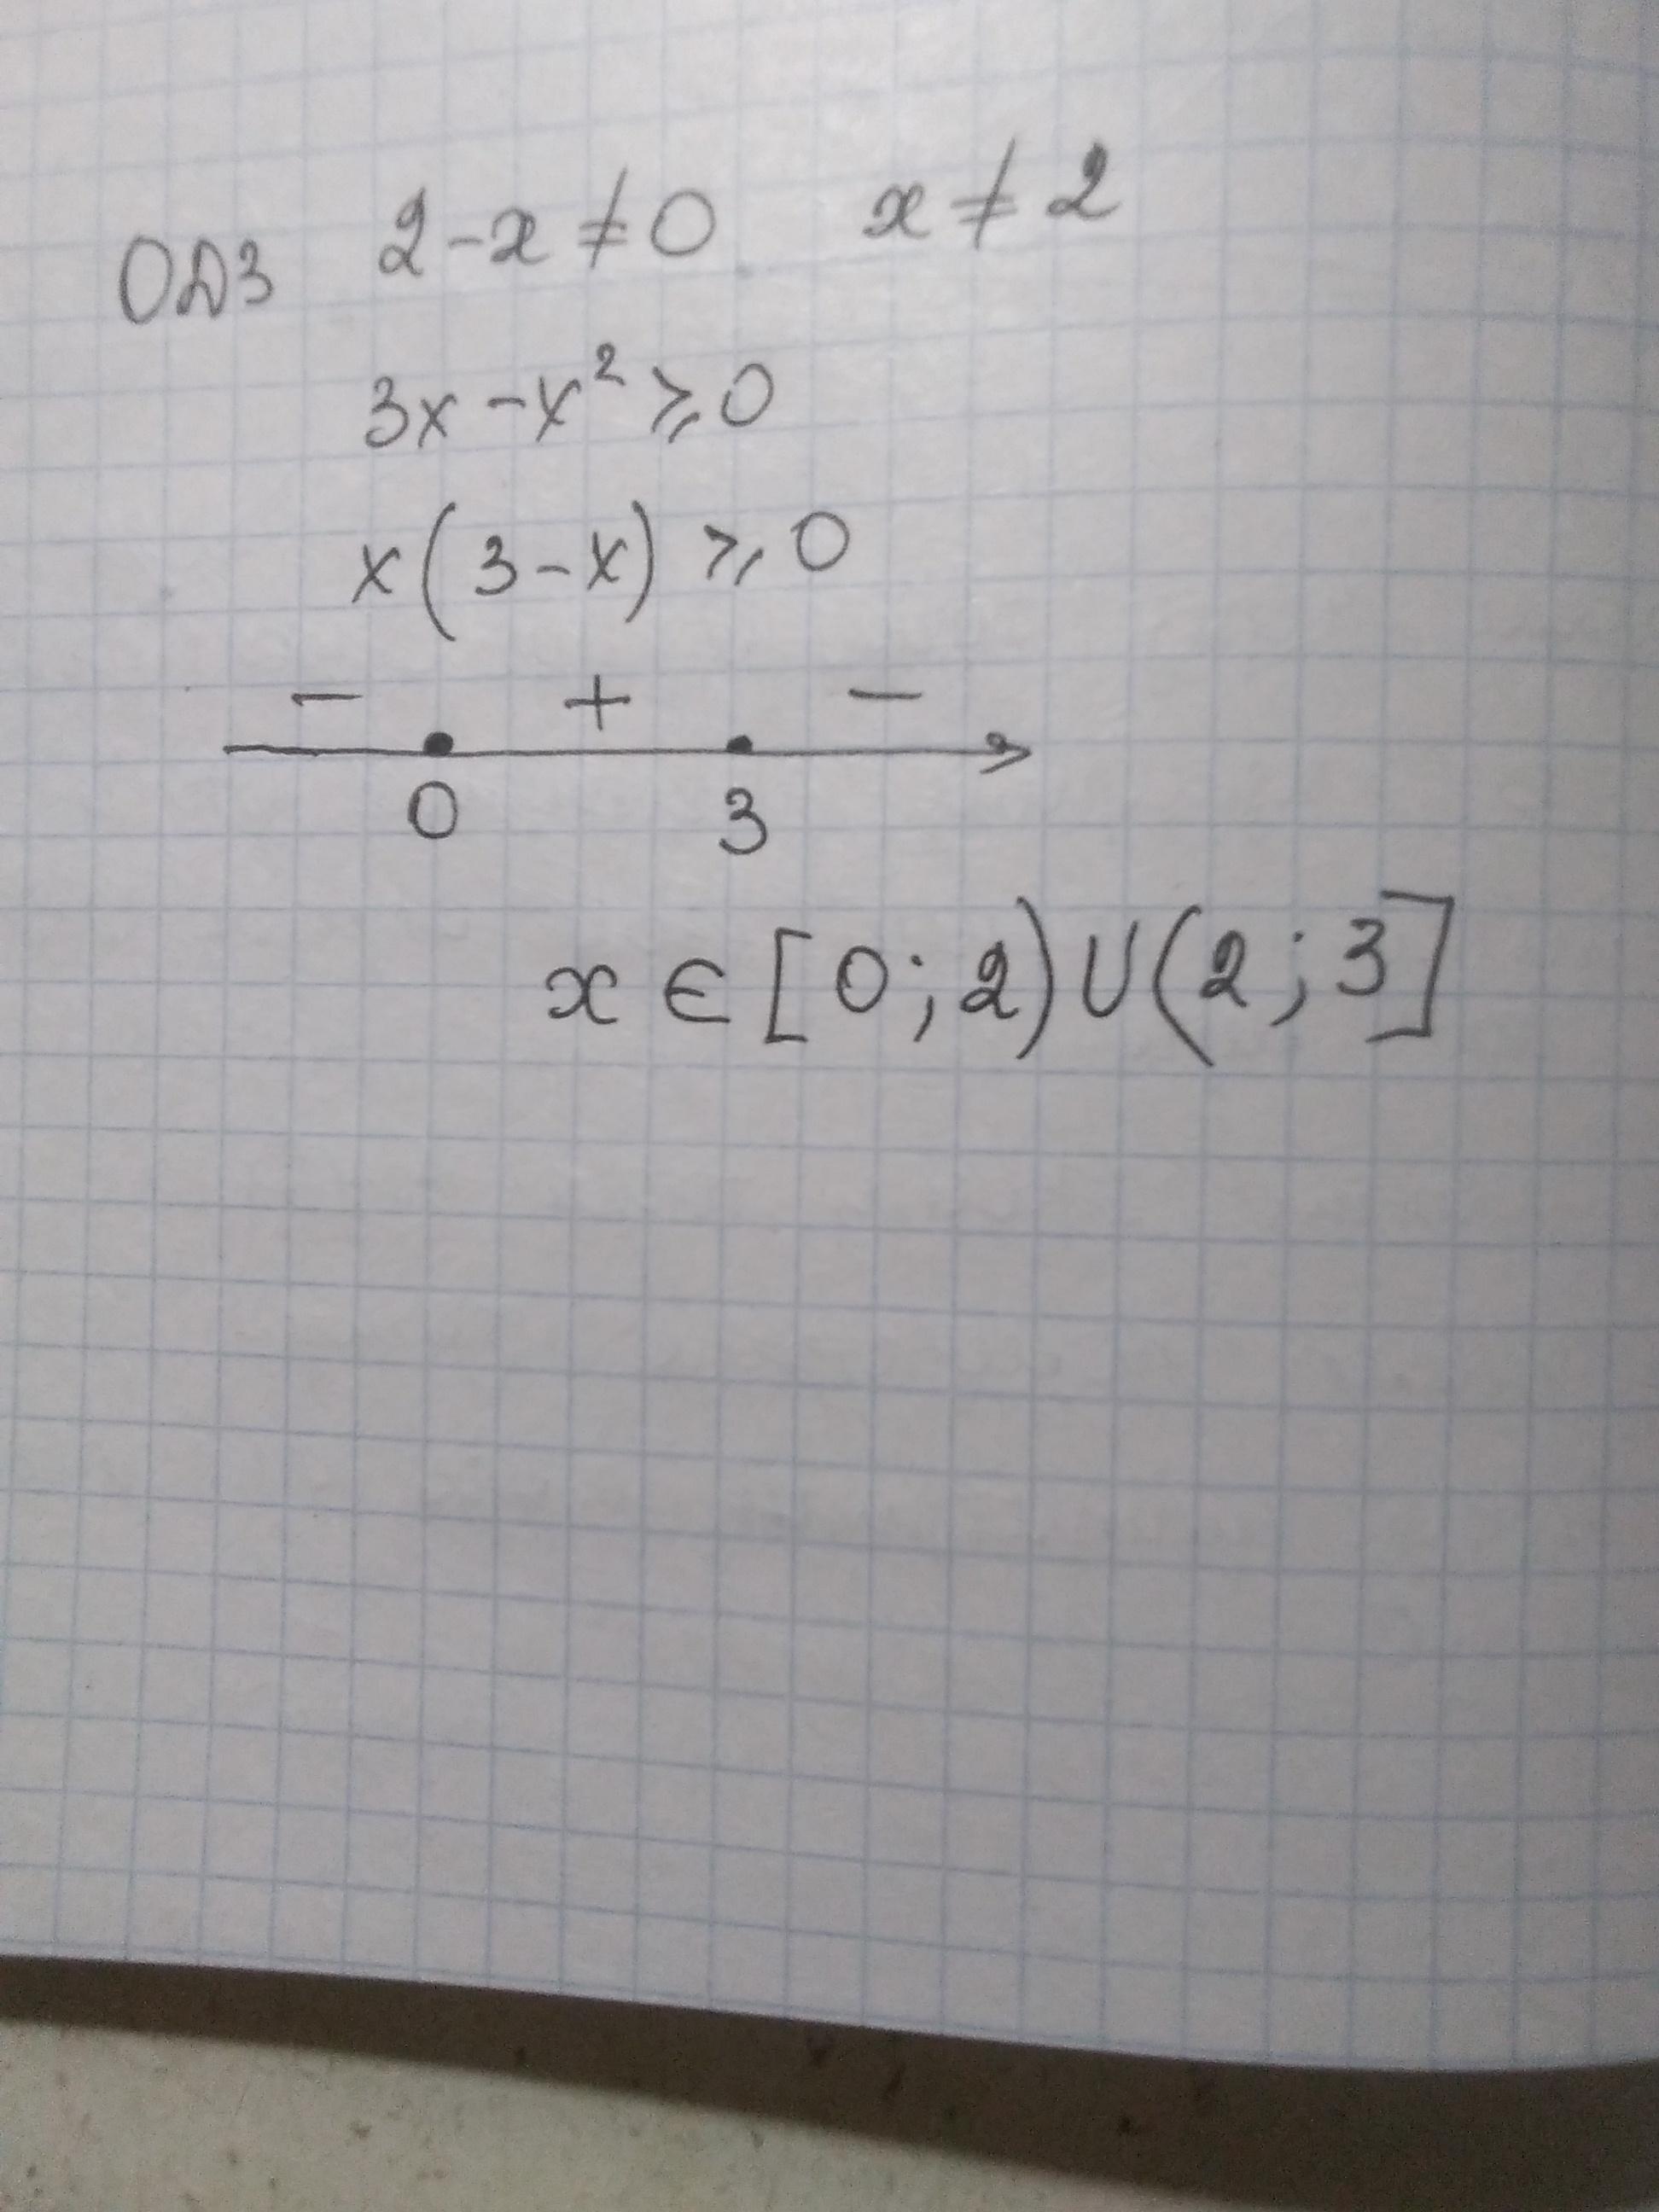 ОДЗ 2-x≠0 x≠2
3x-x²⩾0
x(3-x)⩾0
- + -
0 3
x∈[0;2)∪(2;3]